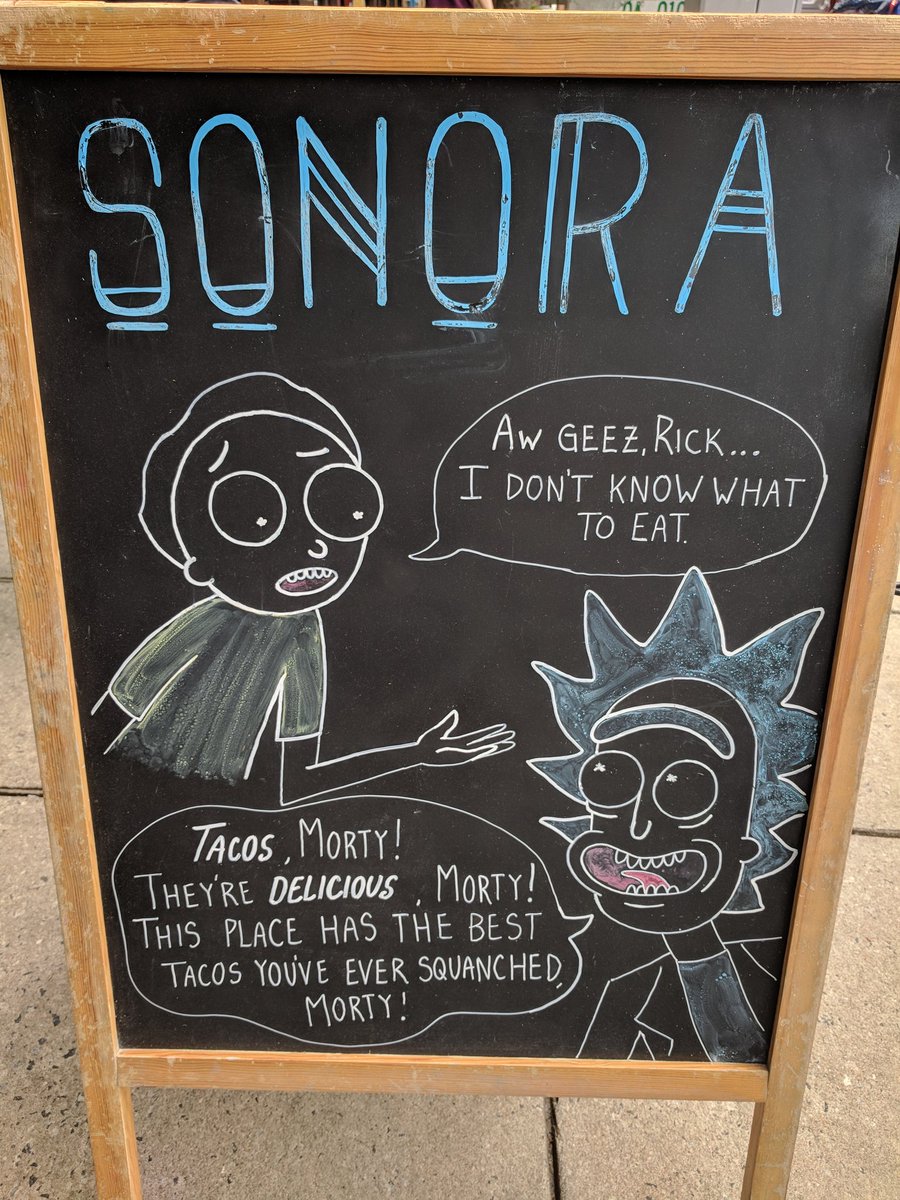 SONORA
AW GEEZ, RICK...
I DON'T KNOW WHAT
TO EAT.
TACOS, MORTY!
THEY'RE DELICIOUS, MORTY!
THIS PLACE HAS THE BEST
TACOS YOU'VE EVER SQUANCHED,
MORTY!